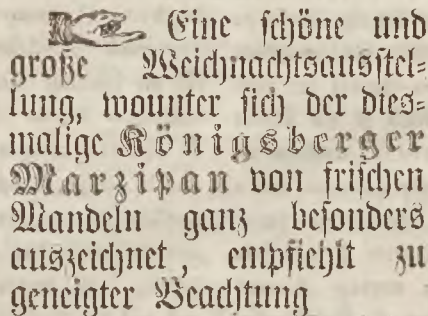 Eine schöne und
große Weihnachtsausstel=
lung, wounter sich der dies=
malige Königsberger
Marzipan von frischen
Mandeln ganz besonders
auszeichnet, empfiehlt zu
geneigter Beachtung